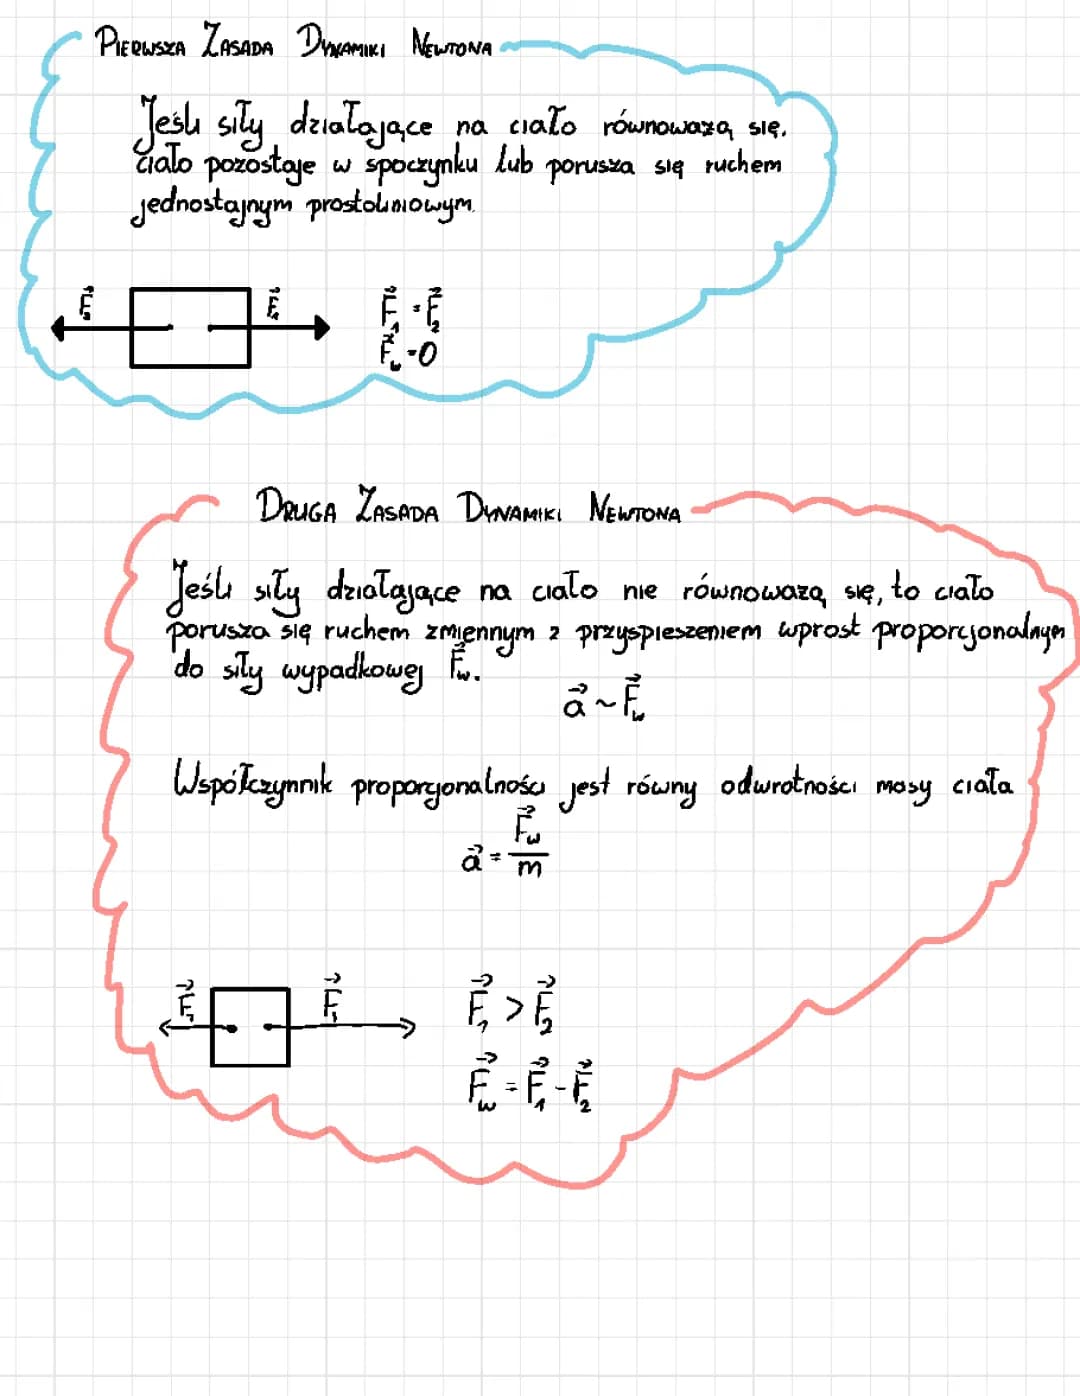 PIERWSZA ZASADA DYNAMIKI NEWTONA
Jeśli siły działające na ciało równoważą się,
ciało pozostaje w spoczynku lub porusza się ruchem
jednostajnym prostoliniowym.
F⃗₂ F⃗₁ F⃗₁ = F⃗₂
F⃗w = 0
DRUGA ZASADA DYNAMIKI NEWTONA
Jeśli siły działające na ciało nie równoważą się, to ciało
porusza się ruchem zmiennym z przyspieszeniem wprost proporcjonalnym
do siły wypadkowej F⃗w.
a⃗ ~ F⃗w
Współczynnik proporcjonalności jest równy odwrotności masy ciała
a⃗ = F⃗w / m
F⃗₁ F⃗₁ > F⃗₂
F⃗w = F⃗₁ - F⃗₂